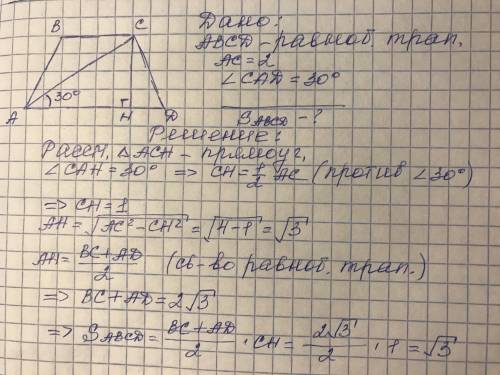 Дано:
ABCD - равноб. трап.
AC = 2
∠CAD = 30°
SABCD - ?
B C
30°
A H D
Решение:
Рассм. △ACH - прямоуг,
∠CAH = 30° => CH = 1/2 AC (против ∠30°)
=> CH = 1
AH = √(AC² - CH²) = √(4-1) = √3
AH = (BC + AD)/2 (св-во равноб. трап.)
=> BC + AD = 2√3
=> SABCD = (BC + AD)/2 · CH = 2√3/2 · 1 = √3